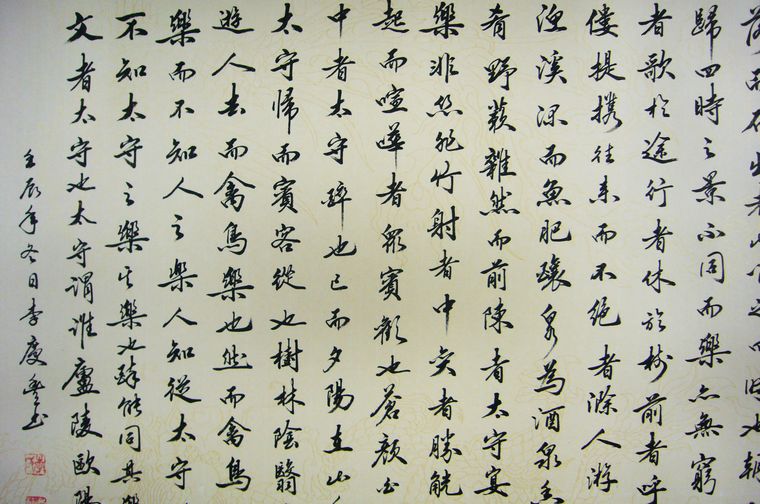 落而石出者山间之四时也朝
歸四時之景不同而樂亦無窮
者歌於途行者休於樹前者呼
僂提携往來而不絕者滁人游
漁溪深而魚肥釀泉為酒泉香
肴野蔌雜然而前陳者太守宴
樂非絲非竹射者中弈者勝觥
起而喧嘩者眾賓歡也蒼顏白
中者太守醉也已而夕陽在山
太守歸而賓客從也樹林陰翳
遊人去而禽鳥樂也然而禽鳥
樂而不知人之樂人知從太守
不知太守之樂其樂也醉能同其樂
文者太守也太守謂誰廬陵歐陽
壬辰年冬日李